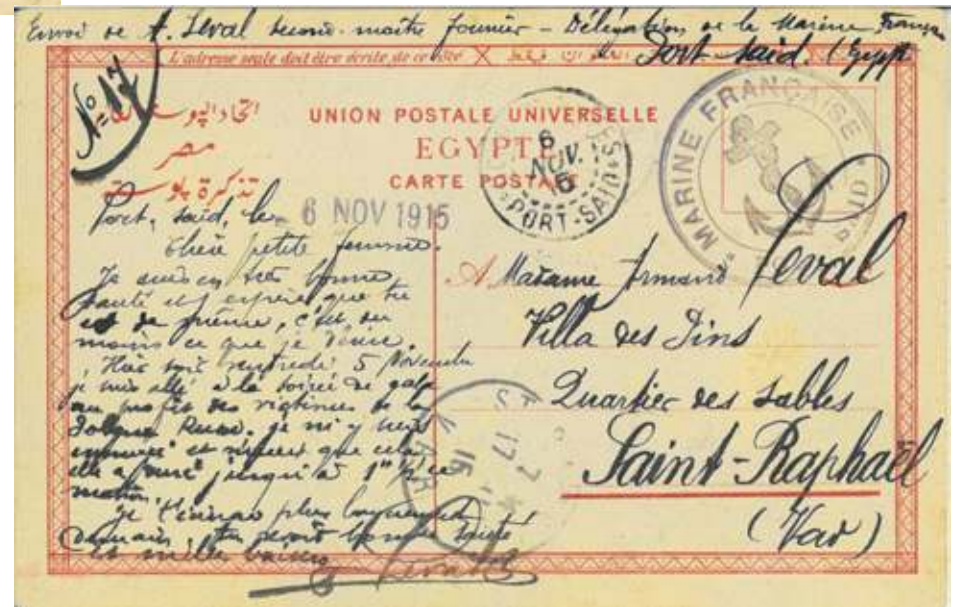 Envoi de A. Leval second-maître fourrier - Délégation de la Marine Française
de Port Saïd. (Egypt
L'adresse seule doit être écrite de ce côté
N° 17
UNION POSTALE UNIVERSELLE
EGYPTE
CARTE POSTALE
مصر
تذكرة بوستة
6
NOV.
PORT-SAID
MARINE FRANÇAISE
Port, Saïd, le 6 NOV 1915
Chère petite femme.
Je suis en très bonne
santé et espère que tu
es de même, c'est du
moins ce que je désire.
Hier soir vendredi 5 Novembre
je suis allé à la soirée de gala
au profit des victimes de la
je m'y
et que cela
a duré jusqu'à 1"
matin.
Je plus longuement
demain, bonne santé
et mille baisers
Leval
A Madame Armand Leval
Villa des Pins
Quartier des Sables
Saint-Raphaël
(Var)